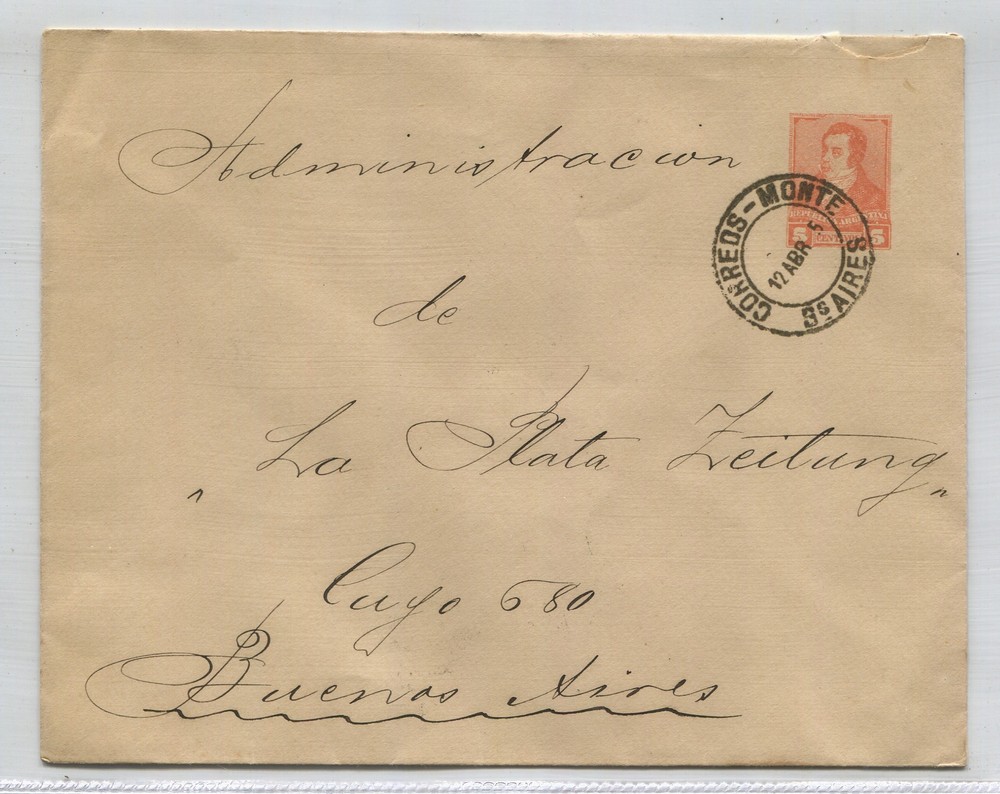 Administracion
REPUBLICA ARGENTINA
5 CENTAVOS 5
CORREOS-MONTE Bs AIRES
12 ABR 5
de
"La Plata Zeitung"
Cuyo 680
Buenos Aires